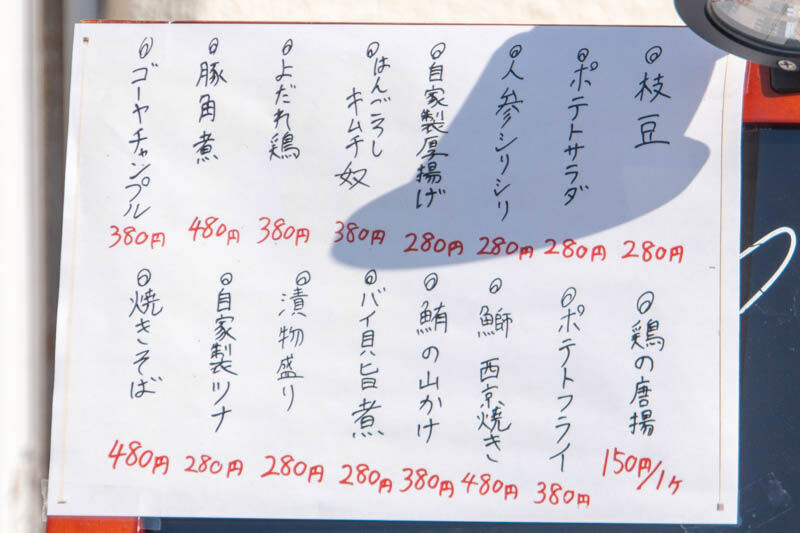 ◎枝豆
280円
◎ポテトサラダ
280円
◎人参シリシリ
280円
◎自家製厚揚げ
280円
◎はんごろし
キムチ奴
380円
◎よだれ鶏
380円
◎豚角煮
480円
◎ゴーヤチャンプル
380円
◎鶏の唐揚
150円/1ヶ
◎ポテトフライ
380円
◎鰤 西京焼き
480円
◎鮪の山かけ
380円
◎バイ貝旨煮
280円
◎漬物盛り
280円
◎自家製ツナ
280円
◎焼きそば
480円